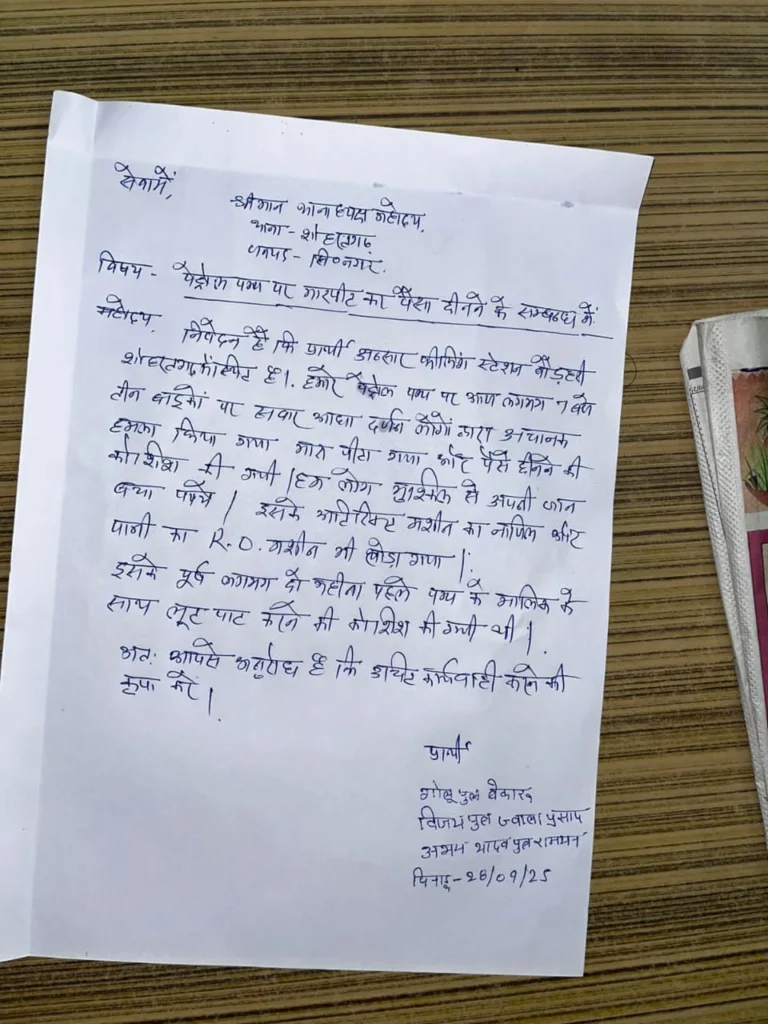 सेवामें,
श्रीमान थानाध्यक्ष महोदय,
थाना - शोहरतगढ़
जनपद - सि०नगर.
विषय - पेट्रोल पम्प पर मारपीट कर पैसा छीनने के सम्बन्ध में.
महोदय,
निवेदन है कि प्रार्थी अन्सार फीलिंग स्टेशन
शोहरतगढ़ है। हमारे पेट्रोल पम्प पर आज लगभग 7 बजे
तीन बाईकों पर सवार आधा दर्जन लोगों द्वारा अचानक
हमला किया गया मारा पीटा गया और पैसे छीनने की
कोशिश की गयी। हम लोग मुश्किल से अपनी जान
बचा पाये। इसके अतिरिक्त मशीन का नोजिल और
पानी का R.O. मशीन भी तोड़ा गया।
इसके पूर्व लगभग दो महीना पहले पम्प के मालिक के
साथ लूट पाट करने की कोशिश की गयी थी।
अतः आपसे अनुरोध है कि उचित कार्यवाही करने की
कृपा करें।
प्रार्थी
गोलू पुत्र
विजय पुत्र ज्वाला प्रसाद
अभय यादव पुत्र
दिनाङ्क - 28/09/25